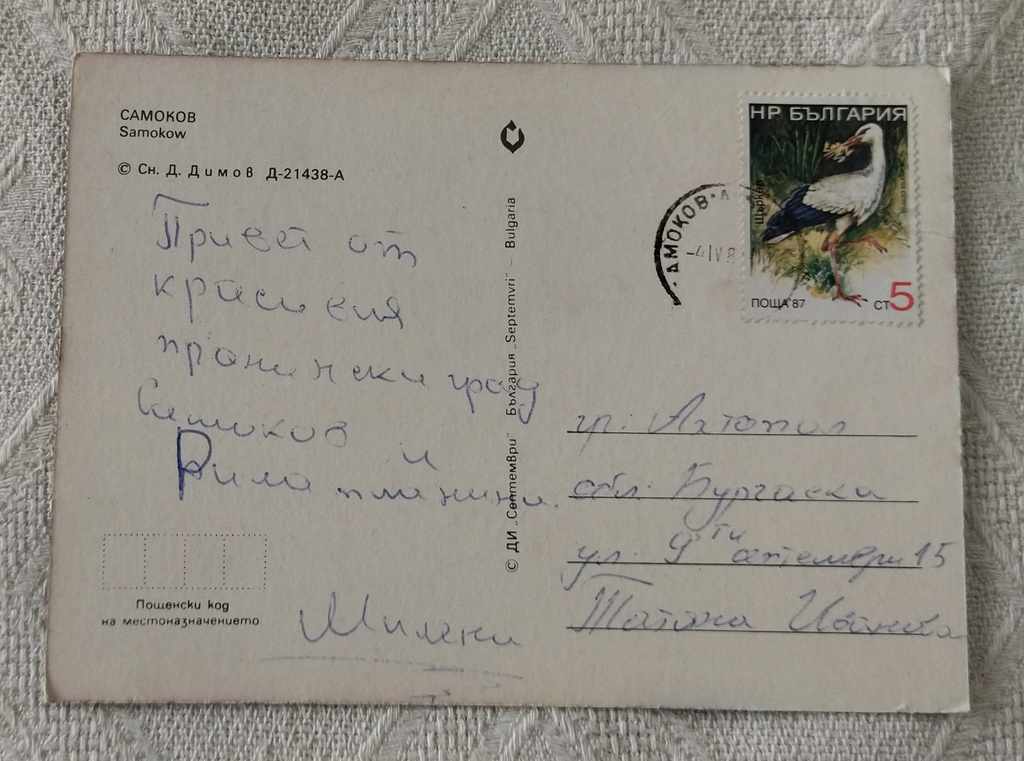 САМОКОВ
Samokow
© Сн. Д. Димов Д-21438-А
Привет от
красивия
планински град
Самоков и
Рила планина.
Милени
Пощенски код
на местоназначението
© ДИ „Септември" България „Septemvri" – Bulgaria
АМОКОВ · А
-4 IV 8
НР БЪЛГАРИЯ
Щъркел
ПОЩА '87
СТ 5
гр. Ахтопол
обл. Бургаска
ул. 9ти септември 15
Иванова